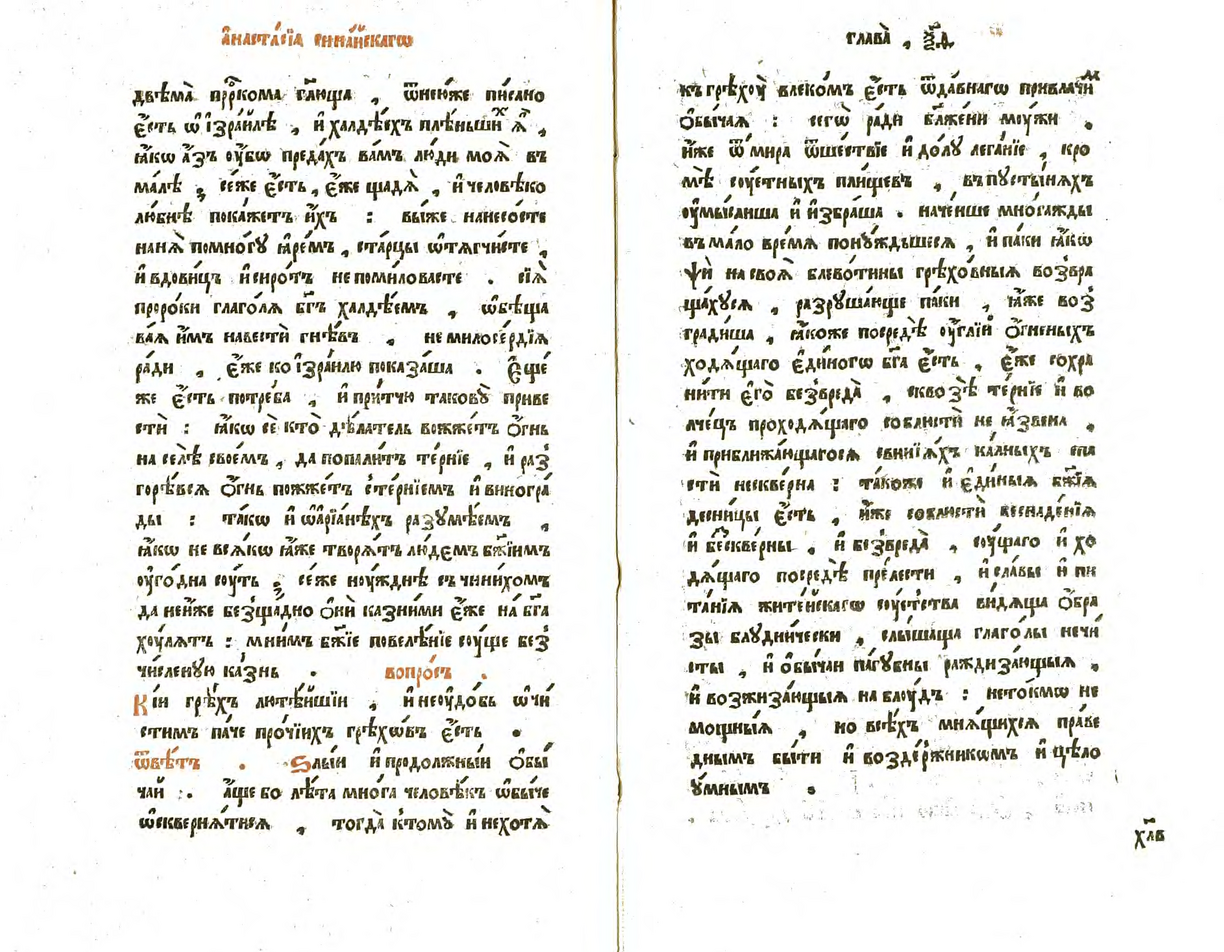 а҆наста́сїа сина́йскагѡ
двѣма̀ прⷪ҇ркома гл҃юща , ѿнею́же пи́сано
є҆́сть ѡ҆ і҆зра́илѣ , и҆ халдѣ́ехъ плѣ́ньшиⷯ ѧ҆̀ ,
ꙗ҆́кѡ а҆́зъ оу҆́бѡ преда́хъ ва́мъ лю́ди моѧ̀ въ
ма́лѣ , се́же є҆́сть , є҆́же щадѧ̀ , и҆ человѣко
лю́бнѣ пока́жетъ и҆̀хъ : вы́же нанесо́сте
нанѧ̀ помно́гу ꙗ҆ре́мъ , ста́рцы ѡ҆тѧгчи́сте ,
и҆ вдови́цъ и҆ си́ротъ непоми́ловасте . сїѧ̀
проро́ки глаго́лѧ бг҃ъ халдѣ́емъ , ѡ҆бѣща
ва́ѧ и҆̀мъ навестѝ гнѣ́въ , немилосе́рдїѧ
ра́ди , є҆́же ко і҆зра́илю показа́ша . Є҆́ще
же є҆́сть потре́ба , и҆ при́тчю такову̀ приве
стѝ : ꙗ҆́кѡ сѐ кто̀ дѣ́латель вожже́тъ ѻ҆́гнь
на се́лѣ свое́мъ , да попали́тъ те́рнїе , и҆ раз̾
горѣ́всѧ ѻ҆́гнь пожже́тъ с̾те́рнїемъ и҆ виногра́
ды : та́кѡ и҆ ѡ҆а҆рїа́нѣхъ разумѣ́емъ ,
ꙗ҆́кѡ не всѧ́кѡ ꙗ҆́же творѧ́тъ лю́демъ бж҃їимъ
оу҆го́дна соу́ть , се́же ноу́жднѣ съчини́хомъ
да неи҆́же без̾ща́дно ѻ҆нѝ казни́ми є҆́же на́ бг҃а
хоу́лѧтъ : мни́мъ бж҃їе повелѣ́нїе соу́ще без̾
чи́сленую ка́знь . вопро́съ .
Кі́и грѣ́хъ лютѣ́йшїи , и҆ неоудо́бь ѡ҆чи́
стимъ па́че про́чїихъ грѣхѡ́въ є҆́сть .
ѿвѣ́тъ . Ѕлы́и и҆ продолжны́и ѻ҆бы́
чаи . а҆́ще бо лѣ́та мно́га человѣ́къ ѡ҆бы́че
ѡ҆сквернѧ́тисѧ , тогда̀ к̾тому̀ и҆ нехотѧ̀
глава̀ , ѯ҃д
къ грѣхоу̀ влеко́мъ є҆́сть ѿда́внагѡ привлачи́ⷨ
ѻ҆бы́чаѧ : сегѡ̀ ра́ди бл҃же́ни моу́жи ,
и҆́же ѿ ми́ра ѿше́ствїе и҆ до́лу лега́нїе , кро
мѣ̀ соу́етныхъ пли́щевъ , въ пусты́нѧхъ
оу҆мы́слиша и҆ и҆збра́ша . наче́нше мно́гажды
въ ма́ло вре́мѧ пону́ждьшесѧ , и҆ па́ки ꙗ҆́кѡ
ψѝ на своѧ̀ блево́тины грѣхо́вныѧ возвра
ща́хусѧ , разруша́юще па́ки , ꙗ҆́же воз̾
гради́ша , ꙗ҆́коже посредѣ̀ оу҆́глїи ѻ҆́гненыхъ
ходѧ́щаго є҆ди́ногѡ бг҃а є҆́сть , є҆́же сохра
ни́ти є҆го̀ без̾вреда̀ , сквозѣ̀ те́рнїе и҆ во
лче́цъ проходѧ́щаго соблюстѝ не ꙗ҆́звена ,
и҆ приближа́ющагосѧ свинїѧ́хъ ка́лныхъ спа
стѝ нескве́рна : та́коже и҆ є҆ди́ныѧ бж҃їѧ
десни́цы є҆́сть , и҆́же соблюстѝ беспаде́нїѧ
и҆ бесскве́рны , и҆ без̾вреда̀ , соу́щаго и҆ хо
дѧ́щаго посредѣ̀ пре́лести , и҆ сла́вы и҆ пи
та́нїѧ жите́йскагѡ соу́етства ви́дѧща ѻ҆́бра
зы блудни́чески , слы́шаща глаго́лы нечи́
сты , и҆ ѻ҆бы́чаи па́губны раждиза́ющыѧ ,
и҆ возжиза́ющыѧ на блоу́дъ : нето́кмѡ не
мощны́ѧ , но всѣ́хъ мнѧ́щихсѧ пра́ве
днымъ бы́ти и҆ возде́ржникѡмъ и҆ цѣ́ло
ᲂу҆́мнымъ .
хла҃в